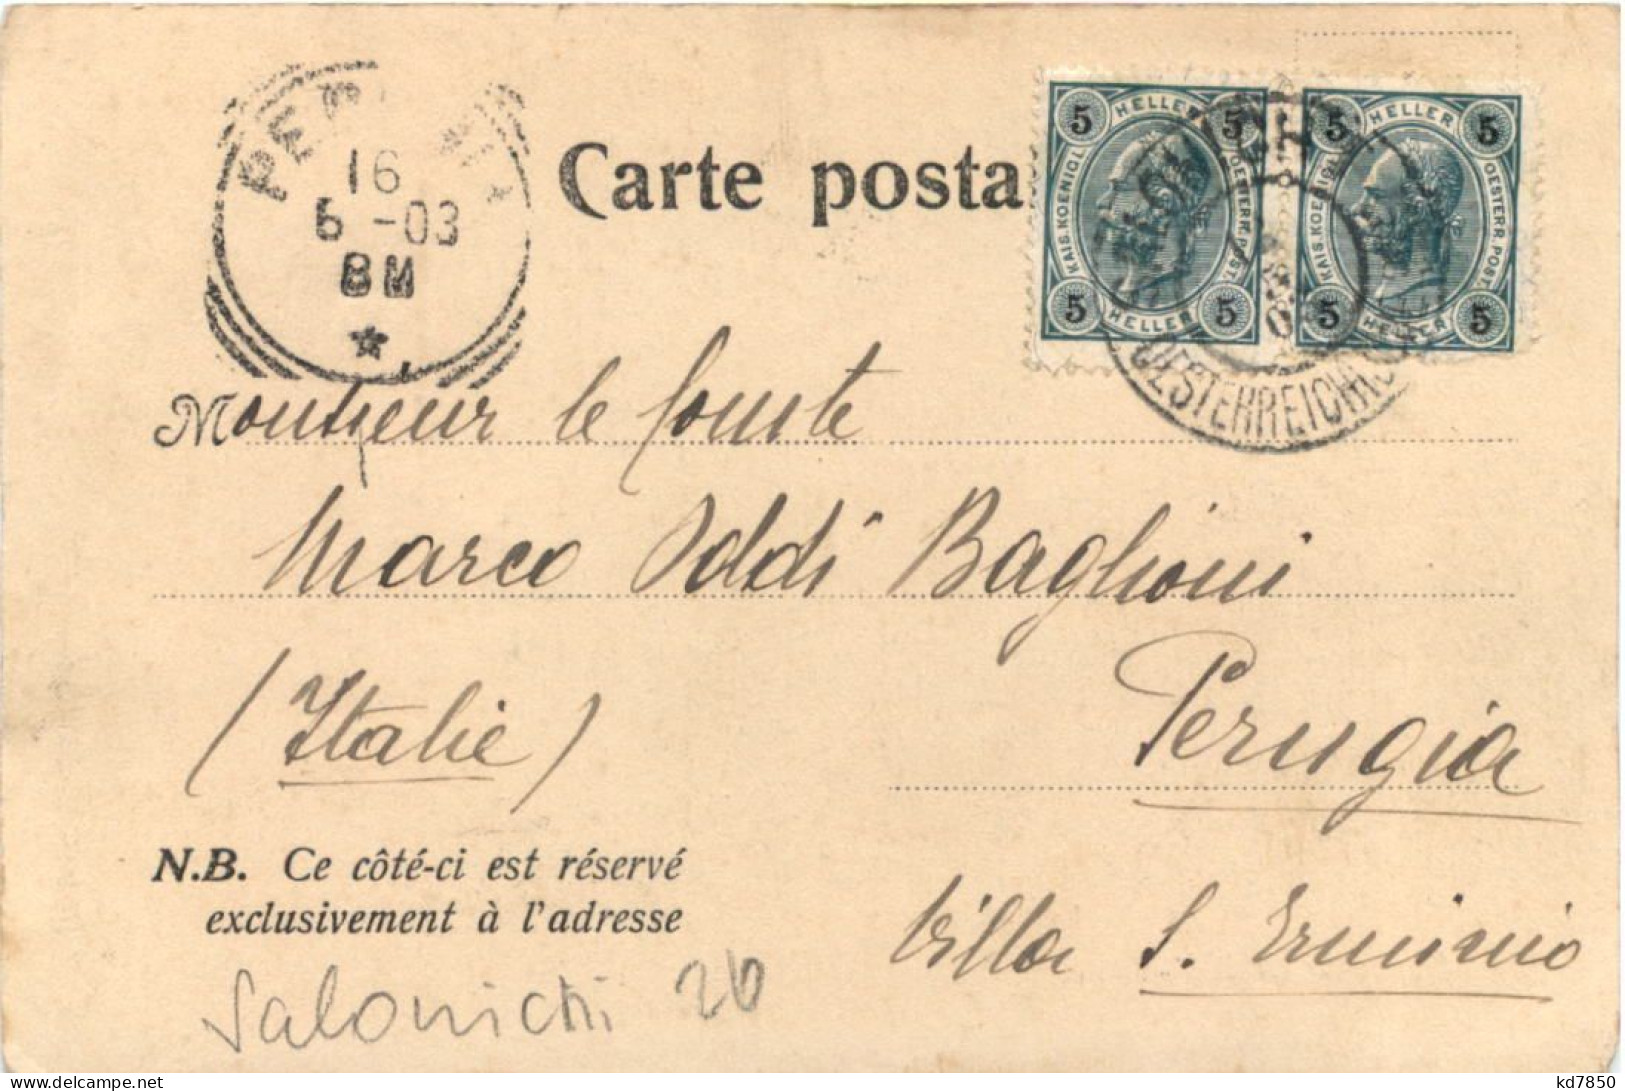 16
5 -03
8 M
Carte posta
5 HELLER 5
KAIS. KOENIGL. OESTERR. POST.
5 HELLER 5
5 HELLER 5
KAIS. KOENIGL. OESTERR. POST.
5 HELLER 5
OESTERREICHI
Monsieur le Comte
Marco Oddi Baglioni
(Italie)
Perugia
N.B. Ce côté-ci est réservé
exclusivement à l'adresse
Villa S. Erminio
Salonichi 20
kd7850